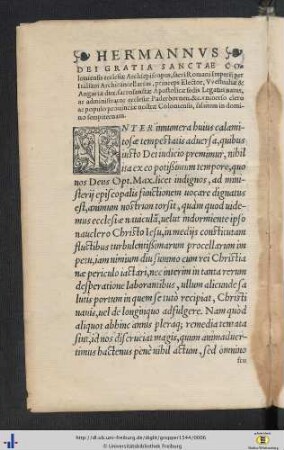 HERMANNVS
DEI GRATIA SANCTAE CO
loniensis ecclesiæ Archiepiscopus, sacri Romani Imperij per
Italiam Archicancellarius, princeps Elector, Vvestualiæ &
Angariæ dux, sacrosanctæ Apostolicæ sedis Legatus natus,
ac administrator ecclesiæ Paderbornen. &c. vniuerso clero
ac populo prouinciæ nostræ Coloniensis, salutem in domi
no sempiternam.
INTER innumera huius calami
tosæ tempestatis aduersa, quibus
iusto Dei iudicio premimur, nihil
ita ex eo potissimum tempore, quo
nos Deus Opt. Max. licet indignos, ad mini
sterij episcopalis functionem uocare dignatus
est, animum nostrum torsit, quàm quod uide-
mus ecclesiæ nauiculā, uelut indormiente ipso
nauclero Christo Iesu, in medijs constitutam
fluctibus turbulentissimarum procellarum im
petu, iam nimium diu summo cum rei Christia
næ periculo iactari, nec interim in tanta rerum
desperatione laborantibus, ullum alicunde sa
lutis portum in quem se tutò recipiat, Christi
nauis, uel de longinquo adfulgere. Nam quòd
aliquot abhinc annis pleraq; remedia tentata
sint, id nos discruciat magis, quum animaduer-
timus hactenus penè nihil actum, sed omnino
http://dl.ub.uni-freiburg.de/diglit/gropper1544/0006
© Universitätsbibliothek Freiburg